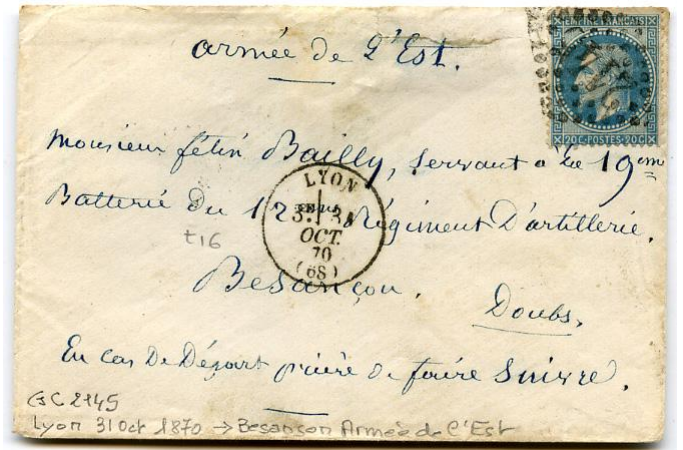 armée de l'Est.
EMPIRE FRANÇAIS
20C POSTES 20C
Monsieur félix Bailly, servant a la 19em
Batterie du 12 Régiment D'artillerie.
LYON
31
OCT.
70
(68)
t16
Besançon.
Doubs.
En cas De Départ prière de faire Suivre.
GC 2145
Lyon 31 Oct 1870 → Besanson Armée de l'Est